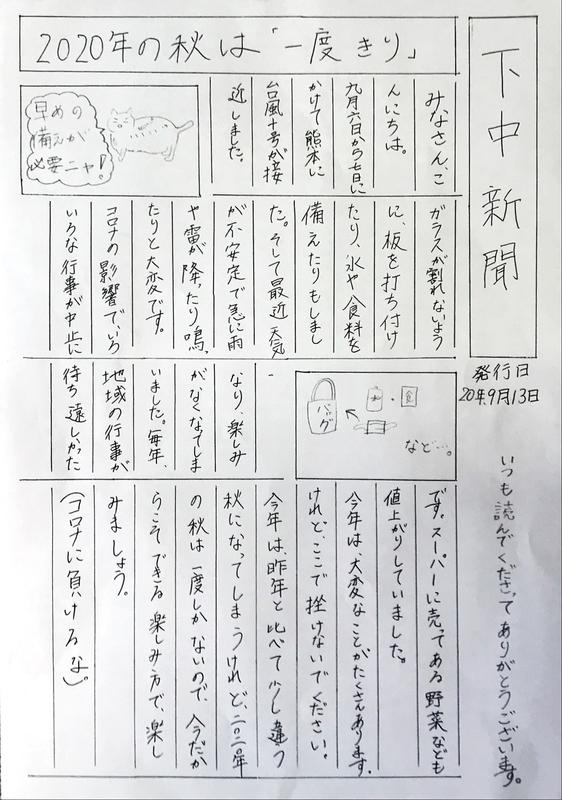 下中新聞
発行日
20年9月13日
いつも読んでくださって ありがとうございます。
2020年の秋は「一度きり」
みなさん、こ
んにちは。
九月六日から七日に
かけて熊本に
台風十号が接
近しました。
早めの
備えが
必要ニャ!
ガラスが割れないよう
に、板を打ち付け
たり、水や食料を
備えたりもしまし
た。そして最近天気
が不安定で急に雨
や雷が降ったり鳴っ
たりと大変です。
コロナの影響でいろ
いろな行事が中止に
バッグ
水
食
など…。
なり、楽しみ
がなくなってしま
いました。毎年、
地域の行事が
待ち遠しかった
です。スーパーに売ってある野菜なども
値上がりしていました。
今年は、大変なことがたくさんあります。
けれど、ここで挫けないでください。
今年は、昨年と比べて少し違う
秋になってしまうけれど、二〇二〇年
の秋は一度しかないので、今だか
らこそできる楽しみ方で、楽し
みましょう。
(コロナに負けるな)。